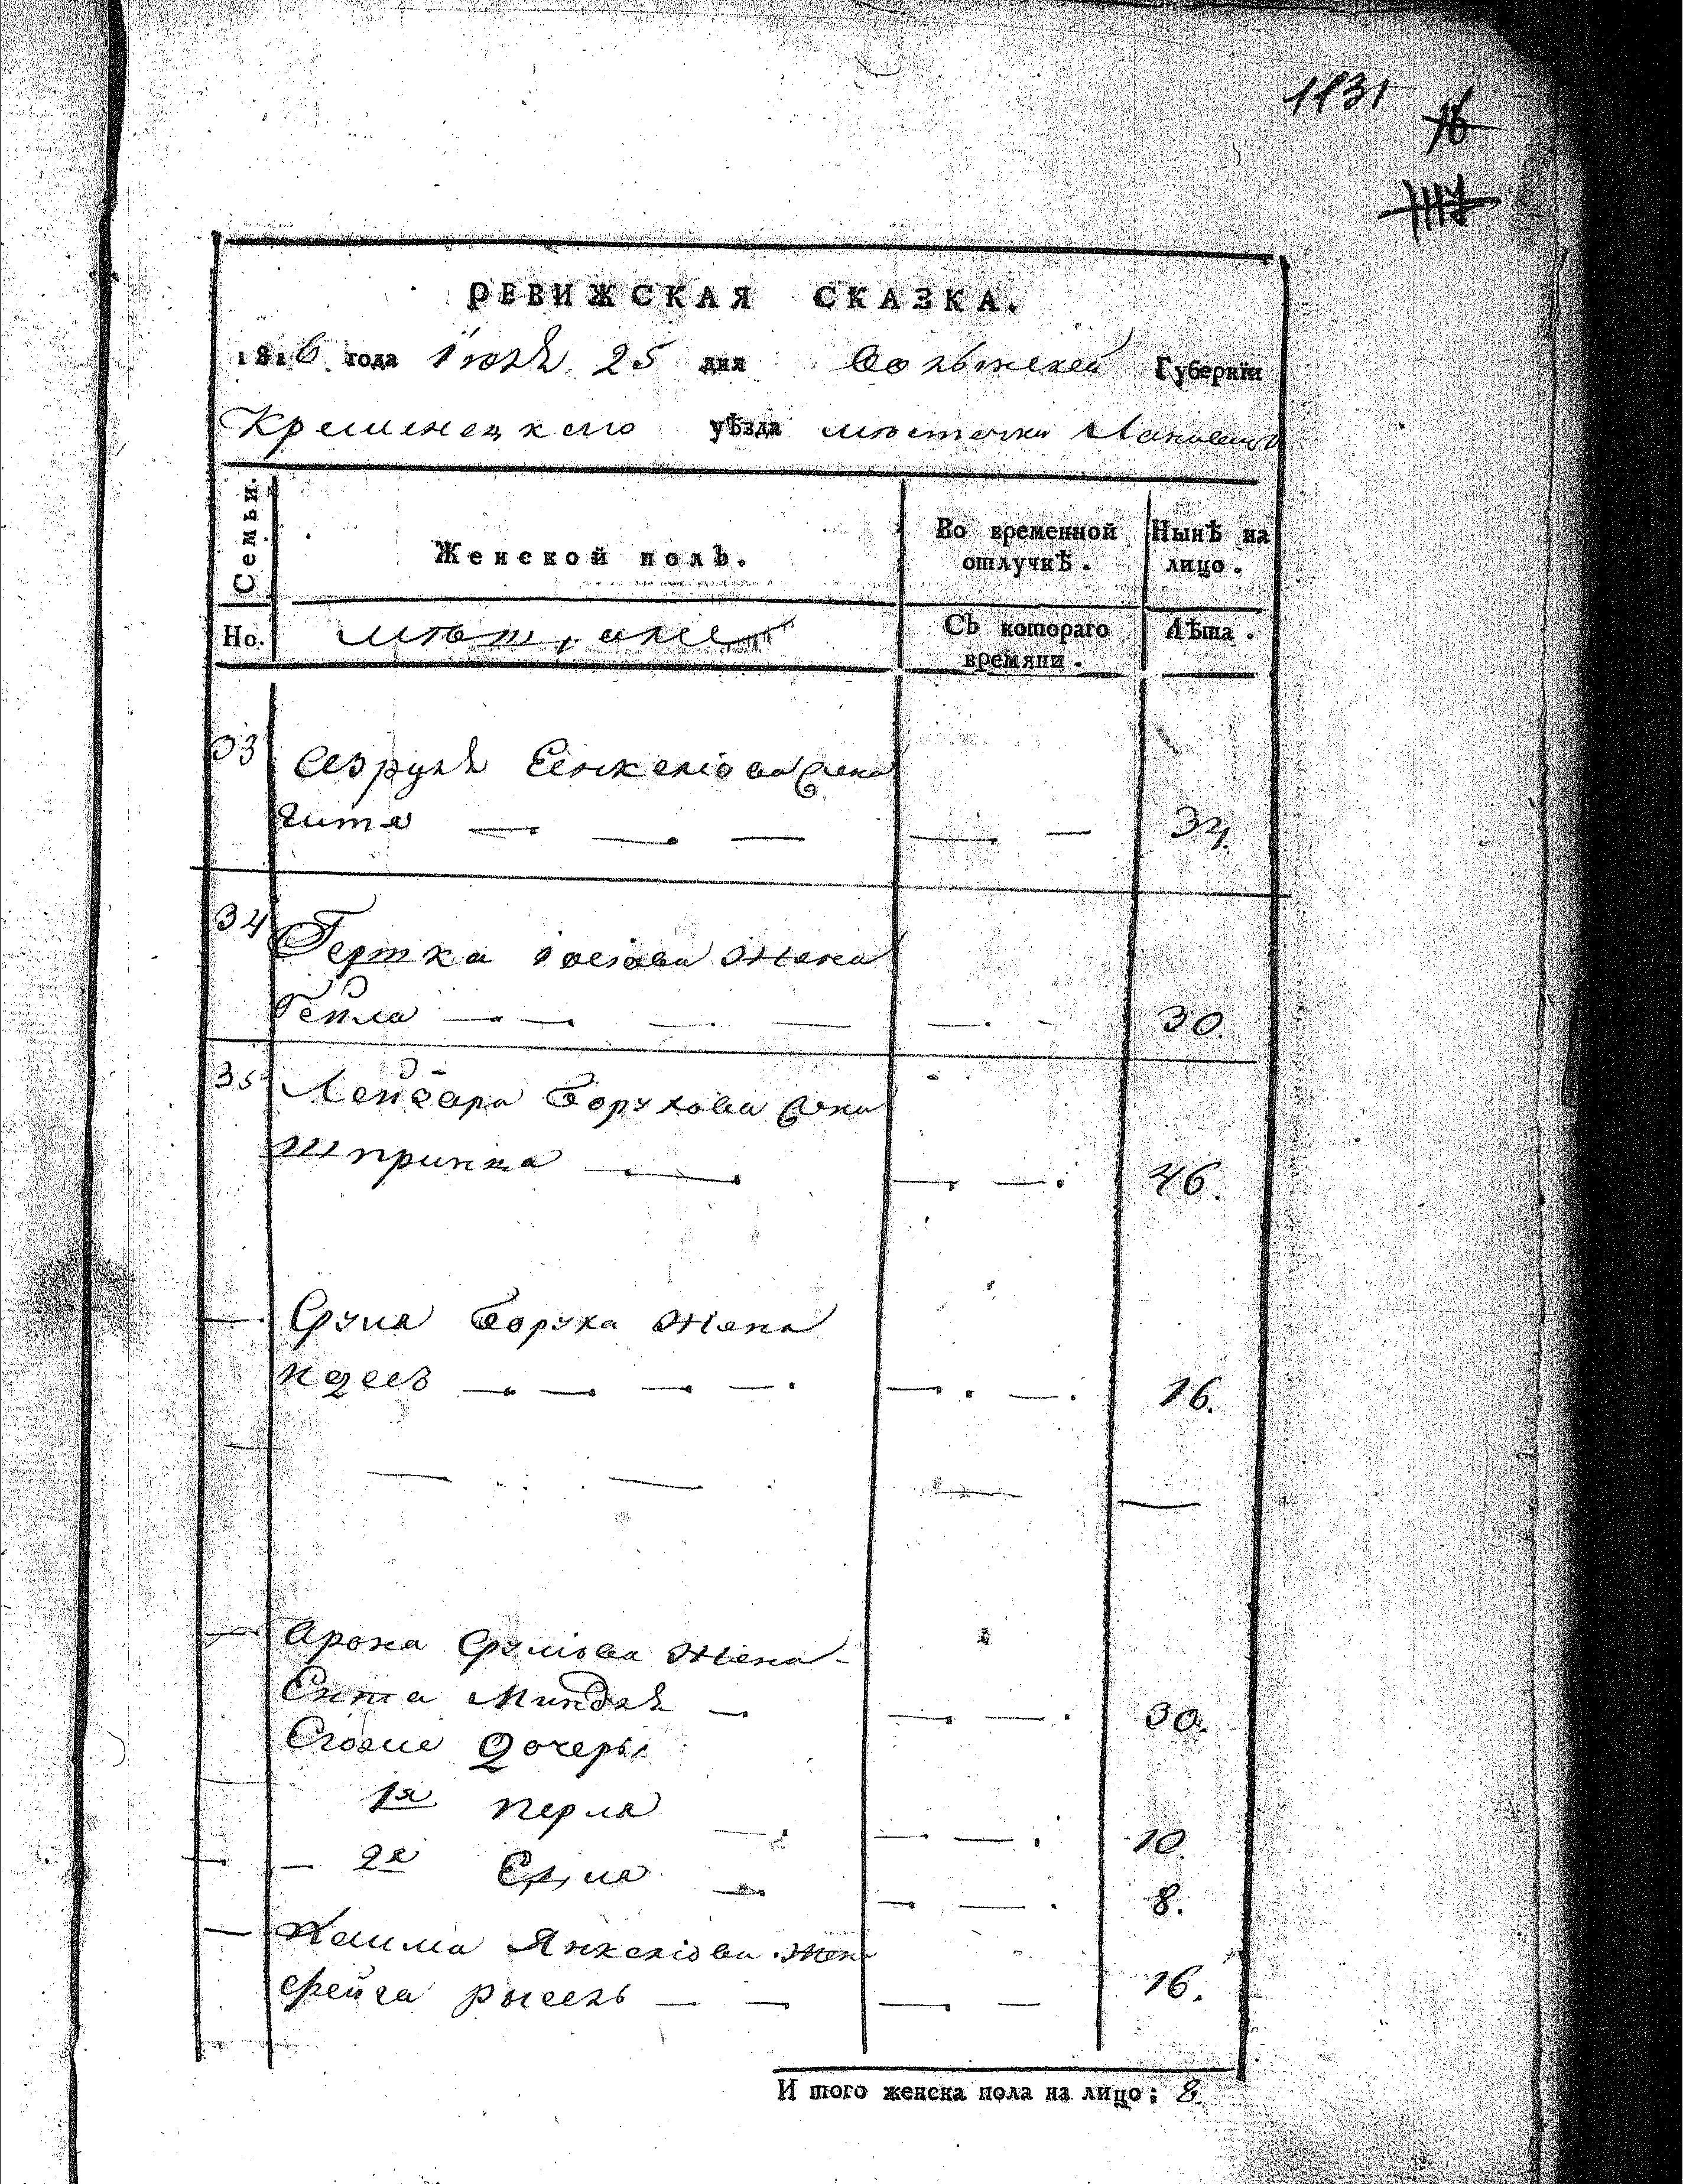 1131
16
РЕВИЖСКАЯ СКАЗКА.
1816 года Июля 25 дня Волынской Губернїи
Кременецкого уѣзда местечка Лановец
Семьи.
Женской полъ.
Во временной отлучкѣ.
Нынѣ на лицо.
Но.
мещане
Съ котораго времяни.
Лѣта.
33
Азруля Еиnкелїова жена
Гитя 34.
34
Гершка жена
Гейла 30.
35
Лейзара Борухова жена
Шпринца 46.
Сруля Боруха жена
16.
Арона Срулїова жена
Ента Миндля 30.
Его же дочеры
1я Перля 10.
2я 8.
Хаима Янкелїова жена
Фейга Рысель 16.
И того женска пола на лицо: 8